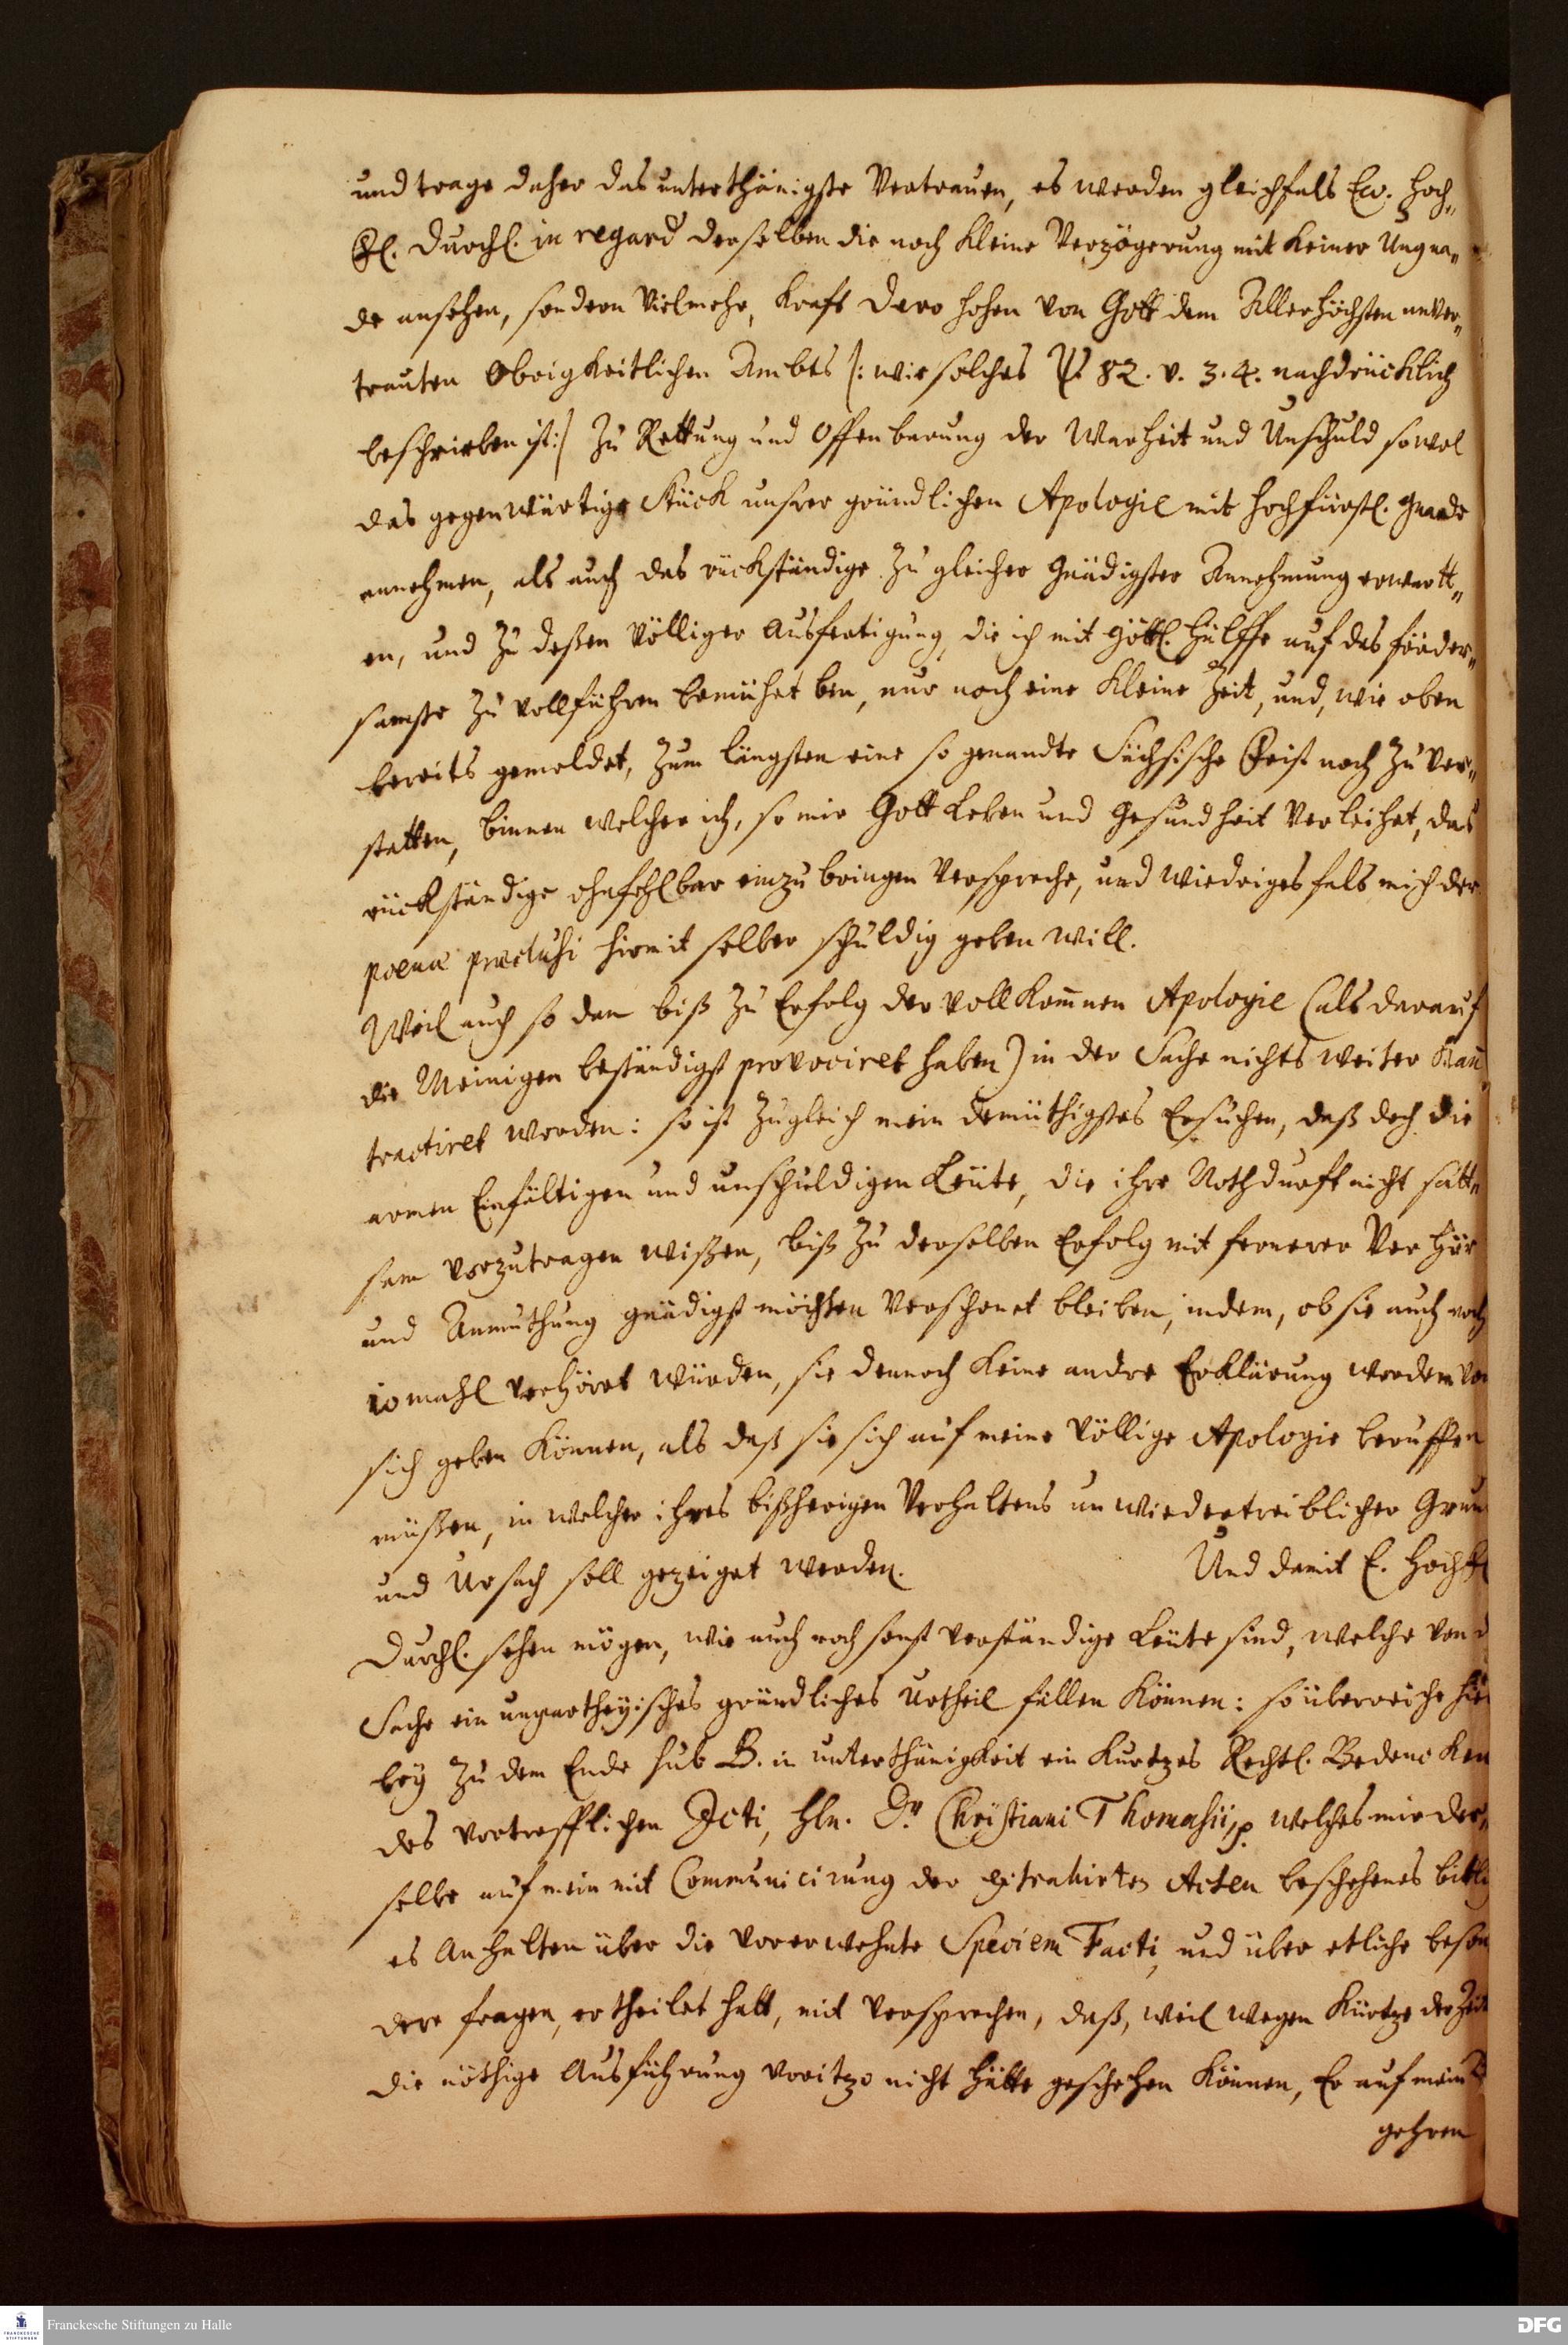 und trage daher das unterthänigste Vertrauen, es werden gleichfals Ew. Hoch„
Fl. Durchl. in regard derselben die noch kleine Verzögerung mit keiner Ungna„
de ansehen, sondern vielmehr, kraft dero hohen von Gott dem Allerhöchsten anver„
trauten Obrigkeitlichen Ambts /: wie solches Ps. 82. v. 3. 4. nachdrücklich
beschrieben ist :/ zu Rettung und Offenbarung der Warheit und Unschuld sowol
das gegenwärtige Stück unsrer gründlichen Apologie mit Hochfürstl. Gnade
annehmen, als auch das rückständige zu gleicher Gnädigster Annehmung erwartt„
en, und zu deßen völliger Ausfertigung, die ich mit Göttl. Hülffe auf das förder„
samste zu vollführen bemühet bin, nur noch eine kleine Zeit, und, wie oben
bereits gemeldet, zum längsten eine so genandte Sächsische Frist noch zu ver„
statten, binnen welcher ich, so mir Gott Leben und Gesundheit verleihet, das
rückständige ohnfehlbar einzubringen verspreche, und wiedriges fals mich der
poenae praeclusi hiermit selber schuldig geben will.
Weil auch so dan biß zu Erfolg der vollkom̅nen Apologie (als darauf
die Meinigen beständigst provociret haben) in der Sache nichts weiter kan̅
tractiret werden: so ist zugleich mein demüthigstes Ersuchen, daß doch die
armen Einfältigen und unschuldigen Leüte, die ihre Nothdurft nicht satt„
sam vorzutragen wißen, biß zu derselben Erfolg mit fernerer Verhör
und Anmuthung gnädigst möchten verschonet bleiben, indem, ob sie auch noch
10 mahl verhöret würden, sie dennoch keine andre Erklärung werden von
sich geben können, als daß sie sich auf meine völlige Apologie beruffen
müßen, in welcher ihres bißherigen Verhaltens unwiedertreiblicher Grun
und Ursach soll gezeiget werden. Und damit E. Hochfl
Durchl. sehen mögen, wie auch noch sonst verständige Leüte sind, welche von d
Sache ein unpartheyisches gründliches Urtheil fällen können: so überreiche hie
bey zu dem Ende sub B. in unterthänigkeit ein kurtzes Rechtl. Bedencken
des vortrefflichen Jcti, Hln. Dr. Christiani Thomasii, p. welches mir der„
selbe auf mein mit Communicirung der extrahirten Acten beschehenes bittli
es Anhalten über die vorerwehnte Speciem Facti, und über etliche beson
dere fragen, ertheilet hatt, mit versprechen, daß, weil wegen Kürtze der Zeit
die nöthige Ausführung voritzo nicht hätte geschehen können, Er auf mein B
gehren
Franckesche Stiftungen zu Halle
DFG